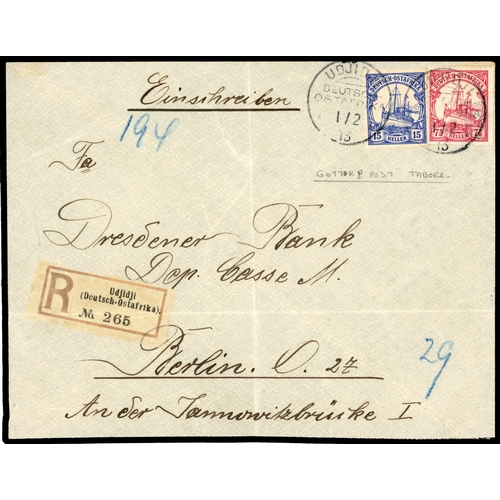 UDJIDJI
DEUTSCH-
OSTAFRIKA
1/2
13
DEUTSCH-OSTAFRIKA
15 15
HELLER
DEUTSCH-OSTAFRIKA
7½
HELLER
13
Einschreiben
194
GOTTORP POST TABORA-
Fa
Dresdener Bank
Dep. Casse M.
R
Udjidji
(Deutsch-Ostafrika).
No. 265
29
Berlin. O. 27
An der Jannowitzbrücke I